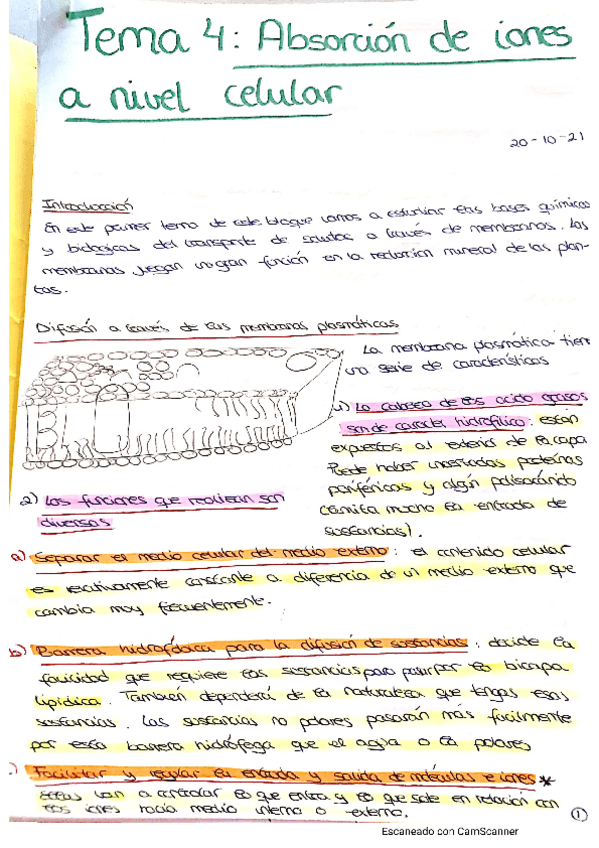 Tema 4: Absorción de iones
a nivel celular
20-10-21
Introducción
En este primer tema de este bloque vamos a estudiar las bases químicas
y biológicas del transporte de solutos a través de membranas. Las
membranas juegan un gran función en la nutrición mineral de las plan-
tas.
Difusión a través de las membranas plasmáticas
La membrana plasmática tiene
una serie de características
1) La cabeza de los acido grasos
son de caracter hidrofílico: están
expuestos al exterior de la capa
Puede haber incrustadas proteínas
periféricas y algún polisacárido
(limita mucho la entrada de
sustancias).
2) Las funciones que realizan son
diversas
a) Separar el medio celular del medio externo: el contenido celular
es relativamente constante a diferencia de un medio externo que
cambia muy frecuentemente.
b) Barrera hidrofóbica para la difusión de sustancias: decide la
facilidad que requiere las sustancias para pasar por la bicapa
lipídica. También dependerá de la naturaleza que tengas esas
sustancias. Las sustancias no polares pasarán más facilmente
por esta barrera hidrófoga que el agua o la polares
.) Facilitar y regular la entrada y salida de moléculas e iones *
van a controlar lo que entra y lo que sale en relación con
los iones hacia medio interno o externo.
1
Escaneado con CamScanner